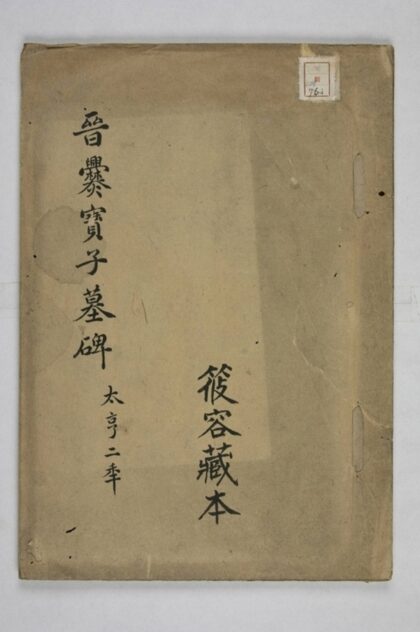 晉爨寶子墓碑
太亨二秊
筱容藏本